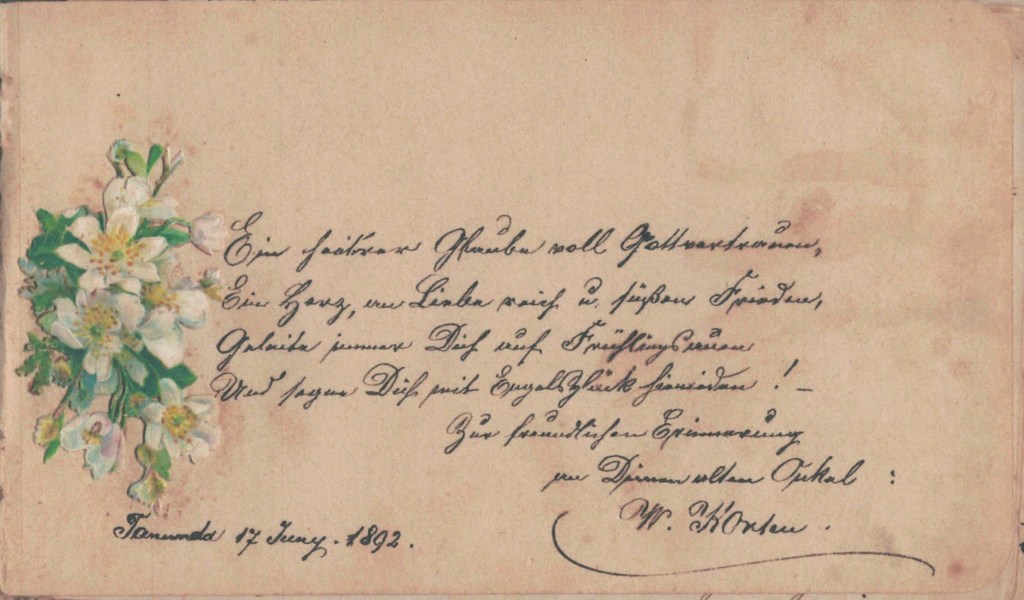 Ein heitrer Glaube voll Gottvertrauen,
Ein Herz, an Liebe reich u. süßen Frieden,
Geleite immer Dich auf Frühlingsauen
Und segne Dich mit Engelsglück hienieden! –
Zur freundlichen Erinnerung
an Deinen alten Onkel :
W. Korten.
Tanunda 17 Juny. 1892.